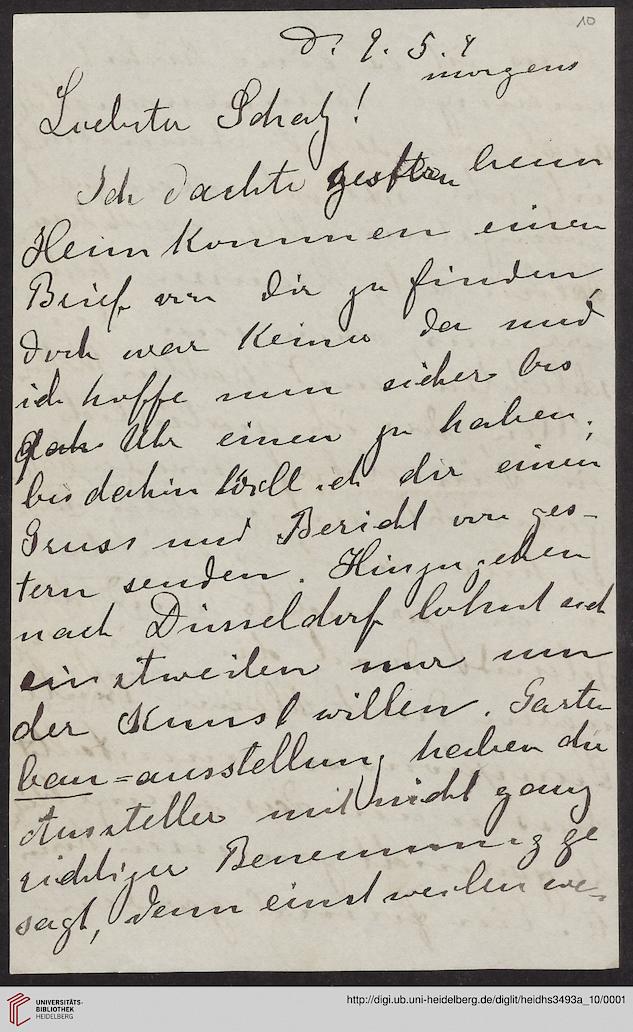 10
d. 9. 5. 4
morgens
Liebster Schatz!
Ich dachte gestern beim
Heimkommen einen
Brief von dir zu finden
doch war keiner da und
ich hoffe nun sicher bis
Uhr einen zu haben.
bis dahin will ich dir einen
Gruss und Bericht von ges-
tern senden. Hinzugehen
nach Düsseldorf lohnt sich
einstweilen nur um
der Kunst willen. Garten
bau=ausstellung haben die
Aussteller mit nicht ganz
richtiger Benennung ge
sagt, denn einstweilen we-
UNIVERSITÄTS-
BIBLIOTHEK
HEIDELBERG
http://digi.ub.uni-heidelberg.de/diglit/heidhs3493a_10/0001